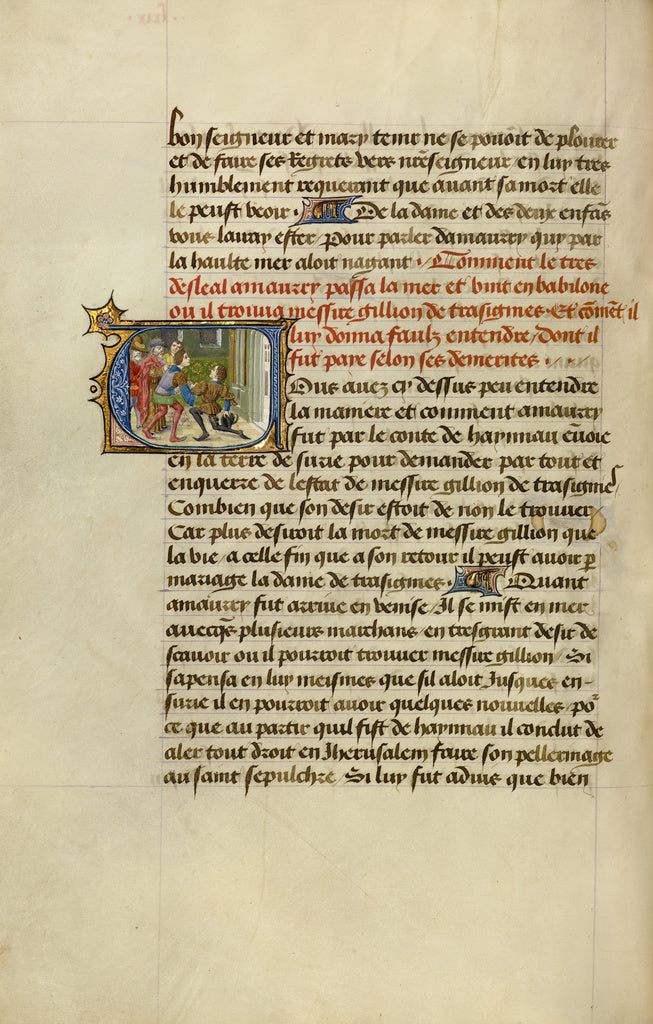 bon seigneur et mary temr ne se pouoit de plourer
et de faire ses Regretz vers nr̃eseigneur en luy tres
humblement requerant que auant sa mort elle
le peust veoir · De la dame et des deux enfãs
vous lauray ester / Pour parler damaurry quy par
la haulte mer aloit nagant · Comment le tres
desleal amaurry passa la mer et vint en babilone
ou il trouua messire gillion de trasignies · Et cõmẽt il
luy donna faulx entendre / dont il
fut paye selon ses demerites · · ·
Vous auez cy dessus peu entendre
la maniere et comment amaurry
fut par le conte de haynnau ẽuoie
en la terre de surie pour demander par tout et
enquerre de lestat de messire gillion de trasignies
Combien que son desir estoit de non le trouuer /
Car plus desiroit la mort de messire gillion que
la vie / a celle fin que a son retour il peust auoir p̱
mariage la dame de trasignies · Quant
amaurry fut arriue en venise / Il se mist en mer
auecq̃s plusieurs marchans / en tresgrant desir de
scauoir ou il pourroit trouuer messire gillion / Si
sapensa en luy meismes que sil aloit Jusques en-
surie il en pourroit auoir quelques nouuelles / po᷑
ce que au partir quil fist de haynnau il conclut de
aler tout droit en Jherusalem faire son pellerinage
au saint sepulchre / Si luy fut aduis que bien